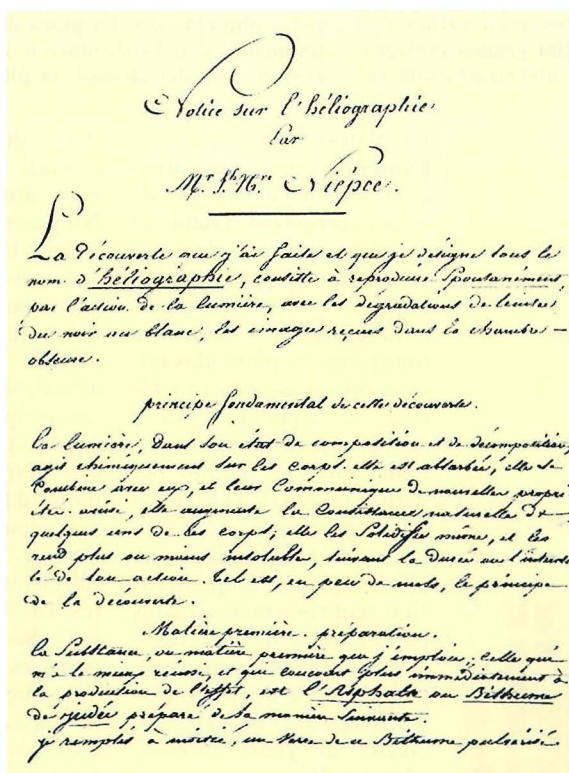 Notice sur l'héliographie
Par
Mr. J. N. Niépce.
La découverte que j'ai faite et que je désigne sous le
nom d'héliographie, consiste à reproduire spontanément,
par l'action de la lumière, avec les dégradations de teintes
du noir au blanc, les images reçues dans la chambre
obscure.
principe fondamental de cette découverte.
la lumière, dans son état de composition et de décomposition,
agit chimiquement sur les corps. elle est absorbée, elle se
combine avec eux, et leur communique de nouvelles propri
étés. ainsi, elle augmente la consistance naturelle de
quelques uns de ces corps; elle les solidifie même, et les
rend plus ou moins insoluble, suivant la durée ou l'intensi
té de son action. tel est, en peu de mots, le principe
de la découverte.
Matière première. préparation.
la substance, ou matière première que j'emploie, celle qui
m'a le mieux réussi, et qui concourt plus immédiatement à
la production de l'effet, est l'Asphalte ou Bithume
de judée préparé de la manière suivante.
je remplis à moitié, un verre de ce Bithume pulvérisé